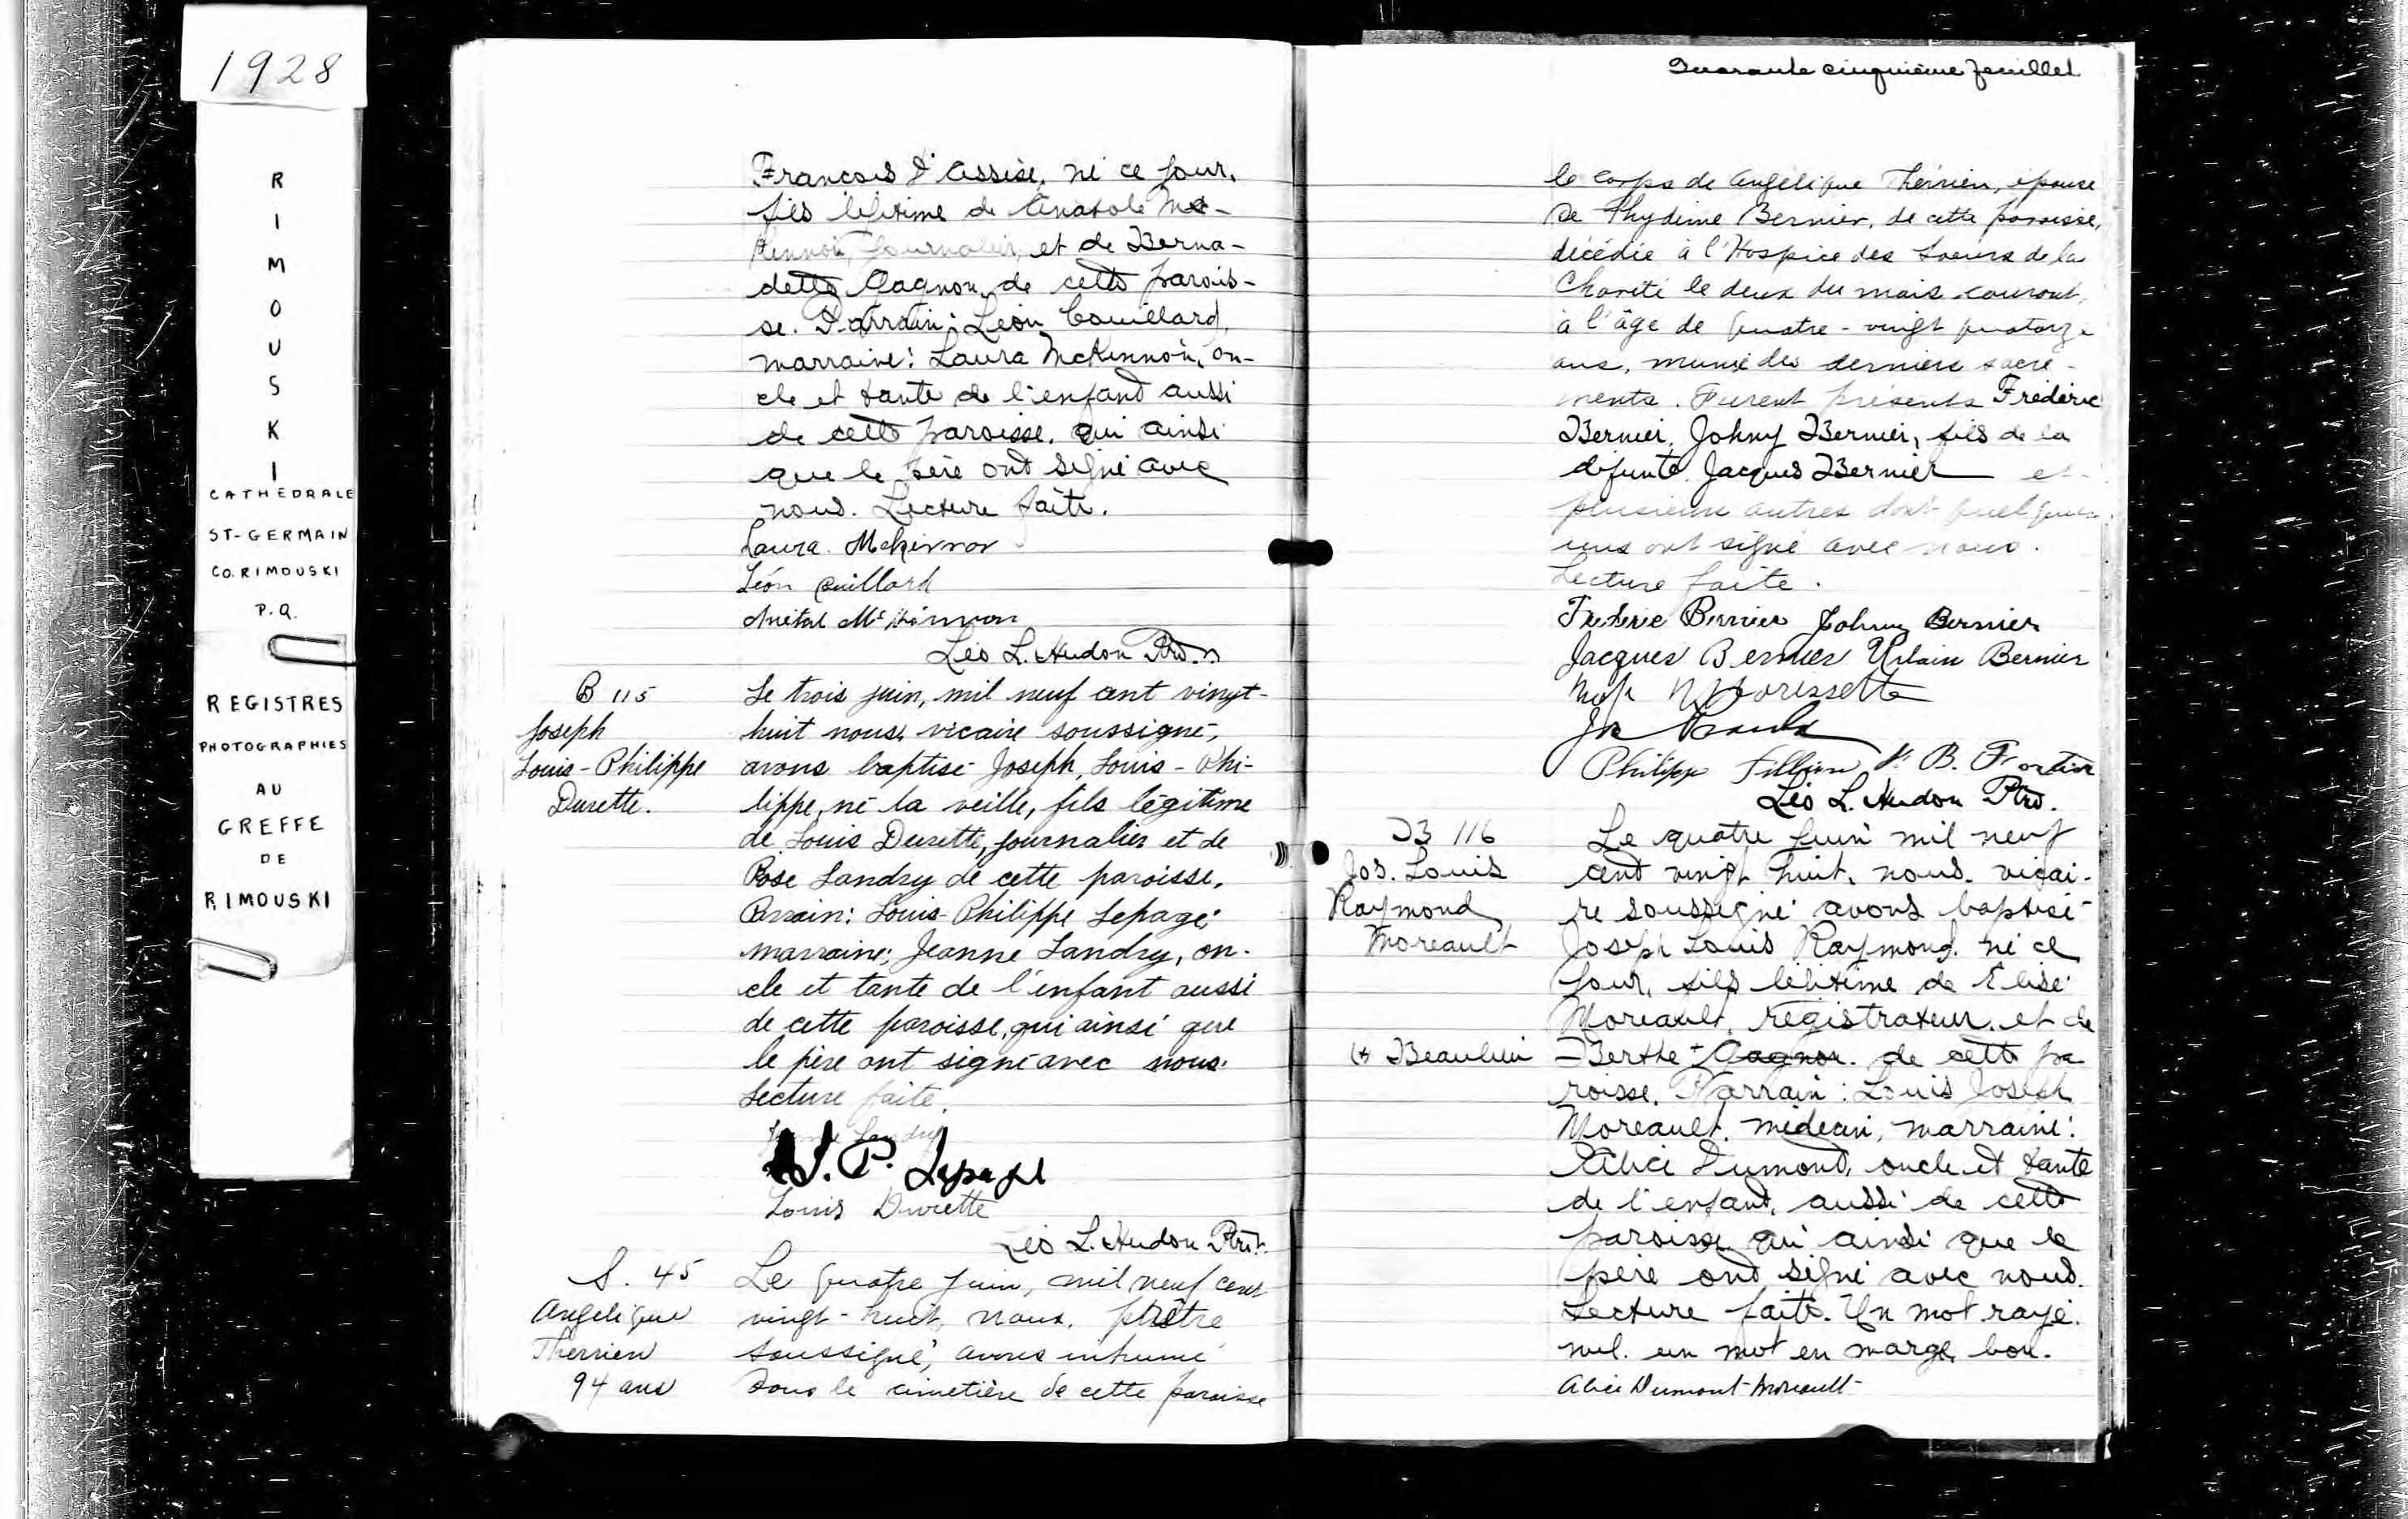 1928
R
I
M
O
U
S
K
I
CATHEDRALE
ST-GERMAIN
CO. RIMOUSKI
P.Q.
REGISTRES
PHOTOGRAPHIES
AU
GREFFE
DE
RIMOUSKI
Francois d'Assise, né ce jour,
fils légitime de Anatole Mc-
Kennon, journalier, et de Berna-
dette Gagnon, de cette parois-
se. Parrain: Léon Couillard,
marraine: Laura McKennon, on-
cle et tante de l'enfant aussi
de cette paroisse, qui ainsi
que le père ont signé avec
nous. Lecture faite.
Laura McKinnon
Léon Couillard
Mc Kinnon
Léo L. Hudon Ptre.
B 115
Joseph
Louis-Philippe
Durette.
Le trois juin, mil neuf cent vingt-
huit nous, vicaire soussigné,
avons baptisé Joseph, Louis-Phi-
lippe, né la veille, fils légitime
de Louis Durette, journalier et de
Rose Landry de cette paroisse.
Parrain: Louis-Philippe Lepage;
marraine; Jeanne Landry, on-
cle et tante de l'enfant aussi
de cette paroisse, qui ainsi que
le père ont signé avec nous.
Lecture faite.
Landry
P. Lepage
Louis Durette
Léo L. Hudon Ptre.
S. 45
Angélique
Therrien
94 ans
Le quatre juin, mil neuf cent
vingt-huit, nous, prêtre
soussigné, avons inhumé
dans le cimetière de cette paroisse
Quarante cinquième feuillet
le corps de Angélique Therrien, épouse
de Phydime Bernier, de cette paroisse,
décédée à l'Hospice des Soeurs de la
Charité le deux du mois courant,
à l'âge de quatre-vingt quatorze
ans, munie des derniers sacre-
ments. Furent présents Fréderic
Bernier, Johny Bernier, fils de la
défunte, Jacques Bernier et
plusieurs autres dont quelques
uns ont signé avec nous.
Lecture faite.
Frederic Bernier Johnny Bernier
Jacques Bernier Urbain Bernier
Morissette
Jos
Philippe Fillion J. B. Fortier
Léo L. Hudon Ptre.
B 116
Jos. Louis
Raymond
Moreault
Le quatre juin mil neuf
cent vingt huit, nous, vicai-
re soussigné avons baptisé
Joseph Louis Raymond, né ce
jour, fils légitime de Elisé
Moreault, registrateur, et de
(+ Beaulieu
Berthe + Gagnon. de cette pa
roisse. Parrain: Louis Joseph
Moreault, médecin, marraine:
Alice Dumont, oncle et tante
de l'enfant, aussi de cette
paroisse qui ainsi que le
père ont signé avec nous.
Lecture faite. Un mot rayé.
nul. un mot en marge, bon.
Alice Dumont-Moreault